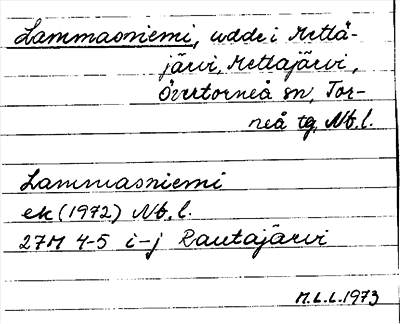 Lammasniemi, udde i Mettä-
järvi, Mettajärvi,
Övertorneå sn, Tor-
neå tg, Nb.l.
Lammasniemi
ek (1972) Nb.l.
27M 4-5 i-j Rautajärvi
M.L.L. 1973